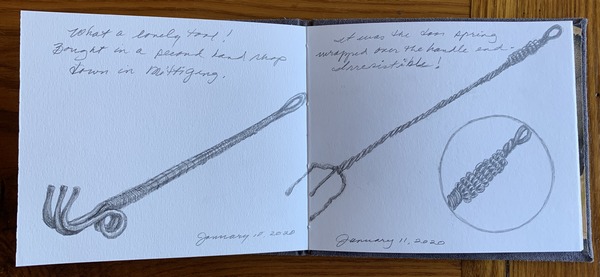 What a lovely tool!
Bought in a second hand shop
down in Mittagong.
January 10 2020
it was the door spring
wrapped over the handle end.
Irresistible!
January 11, 2020